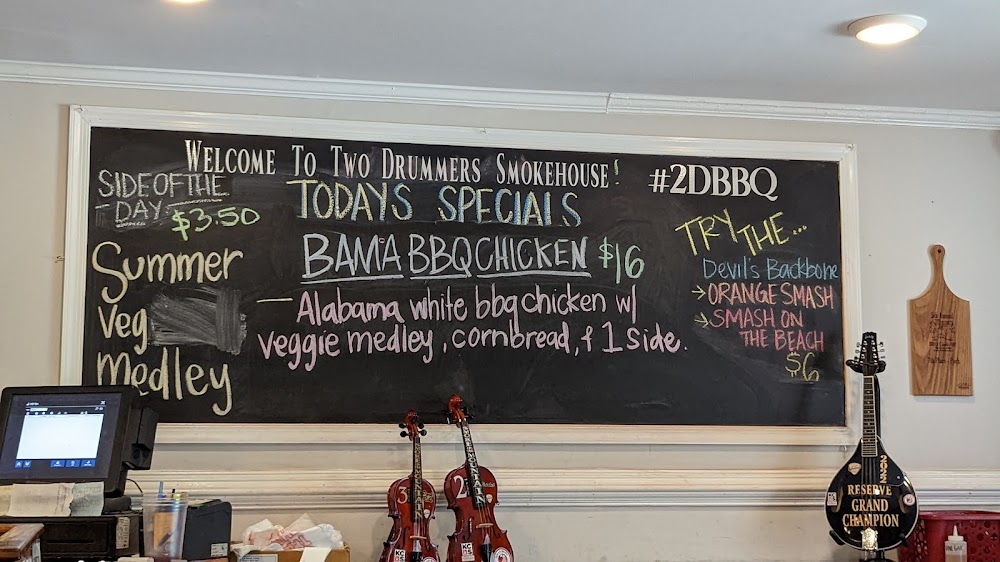 WELCOME TO TWO DRUMMERS SMOKEHOUSE!
#2DBBQ
SIDE OF THE
DAY
$3.50
Summer
Veg
Medley
TODAYS SPECIALS
BAMA BBQ CHICKEN $16
— Alabama white bbq chicken w/
veggie medley, cornbread, & 1 side.
TRY THE...
Devil's Backbone
→ ORANGE SMASH
→ SMASH ON
THE BEACH
$6
3
2
KCBS
2022
RESERVE
GRAND
CHAMPION